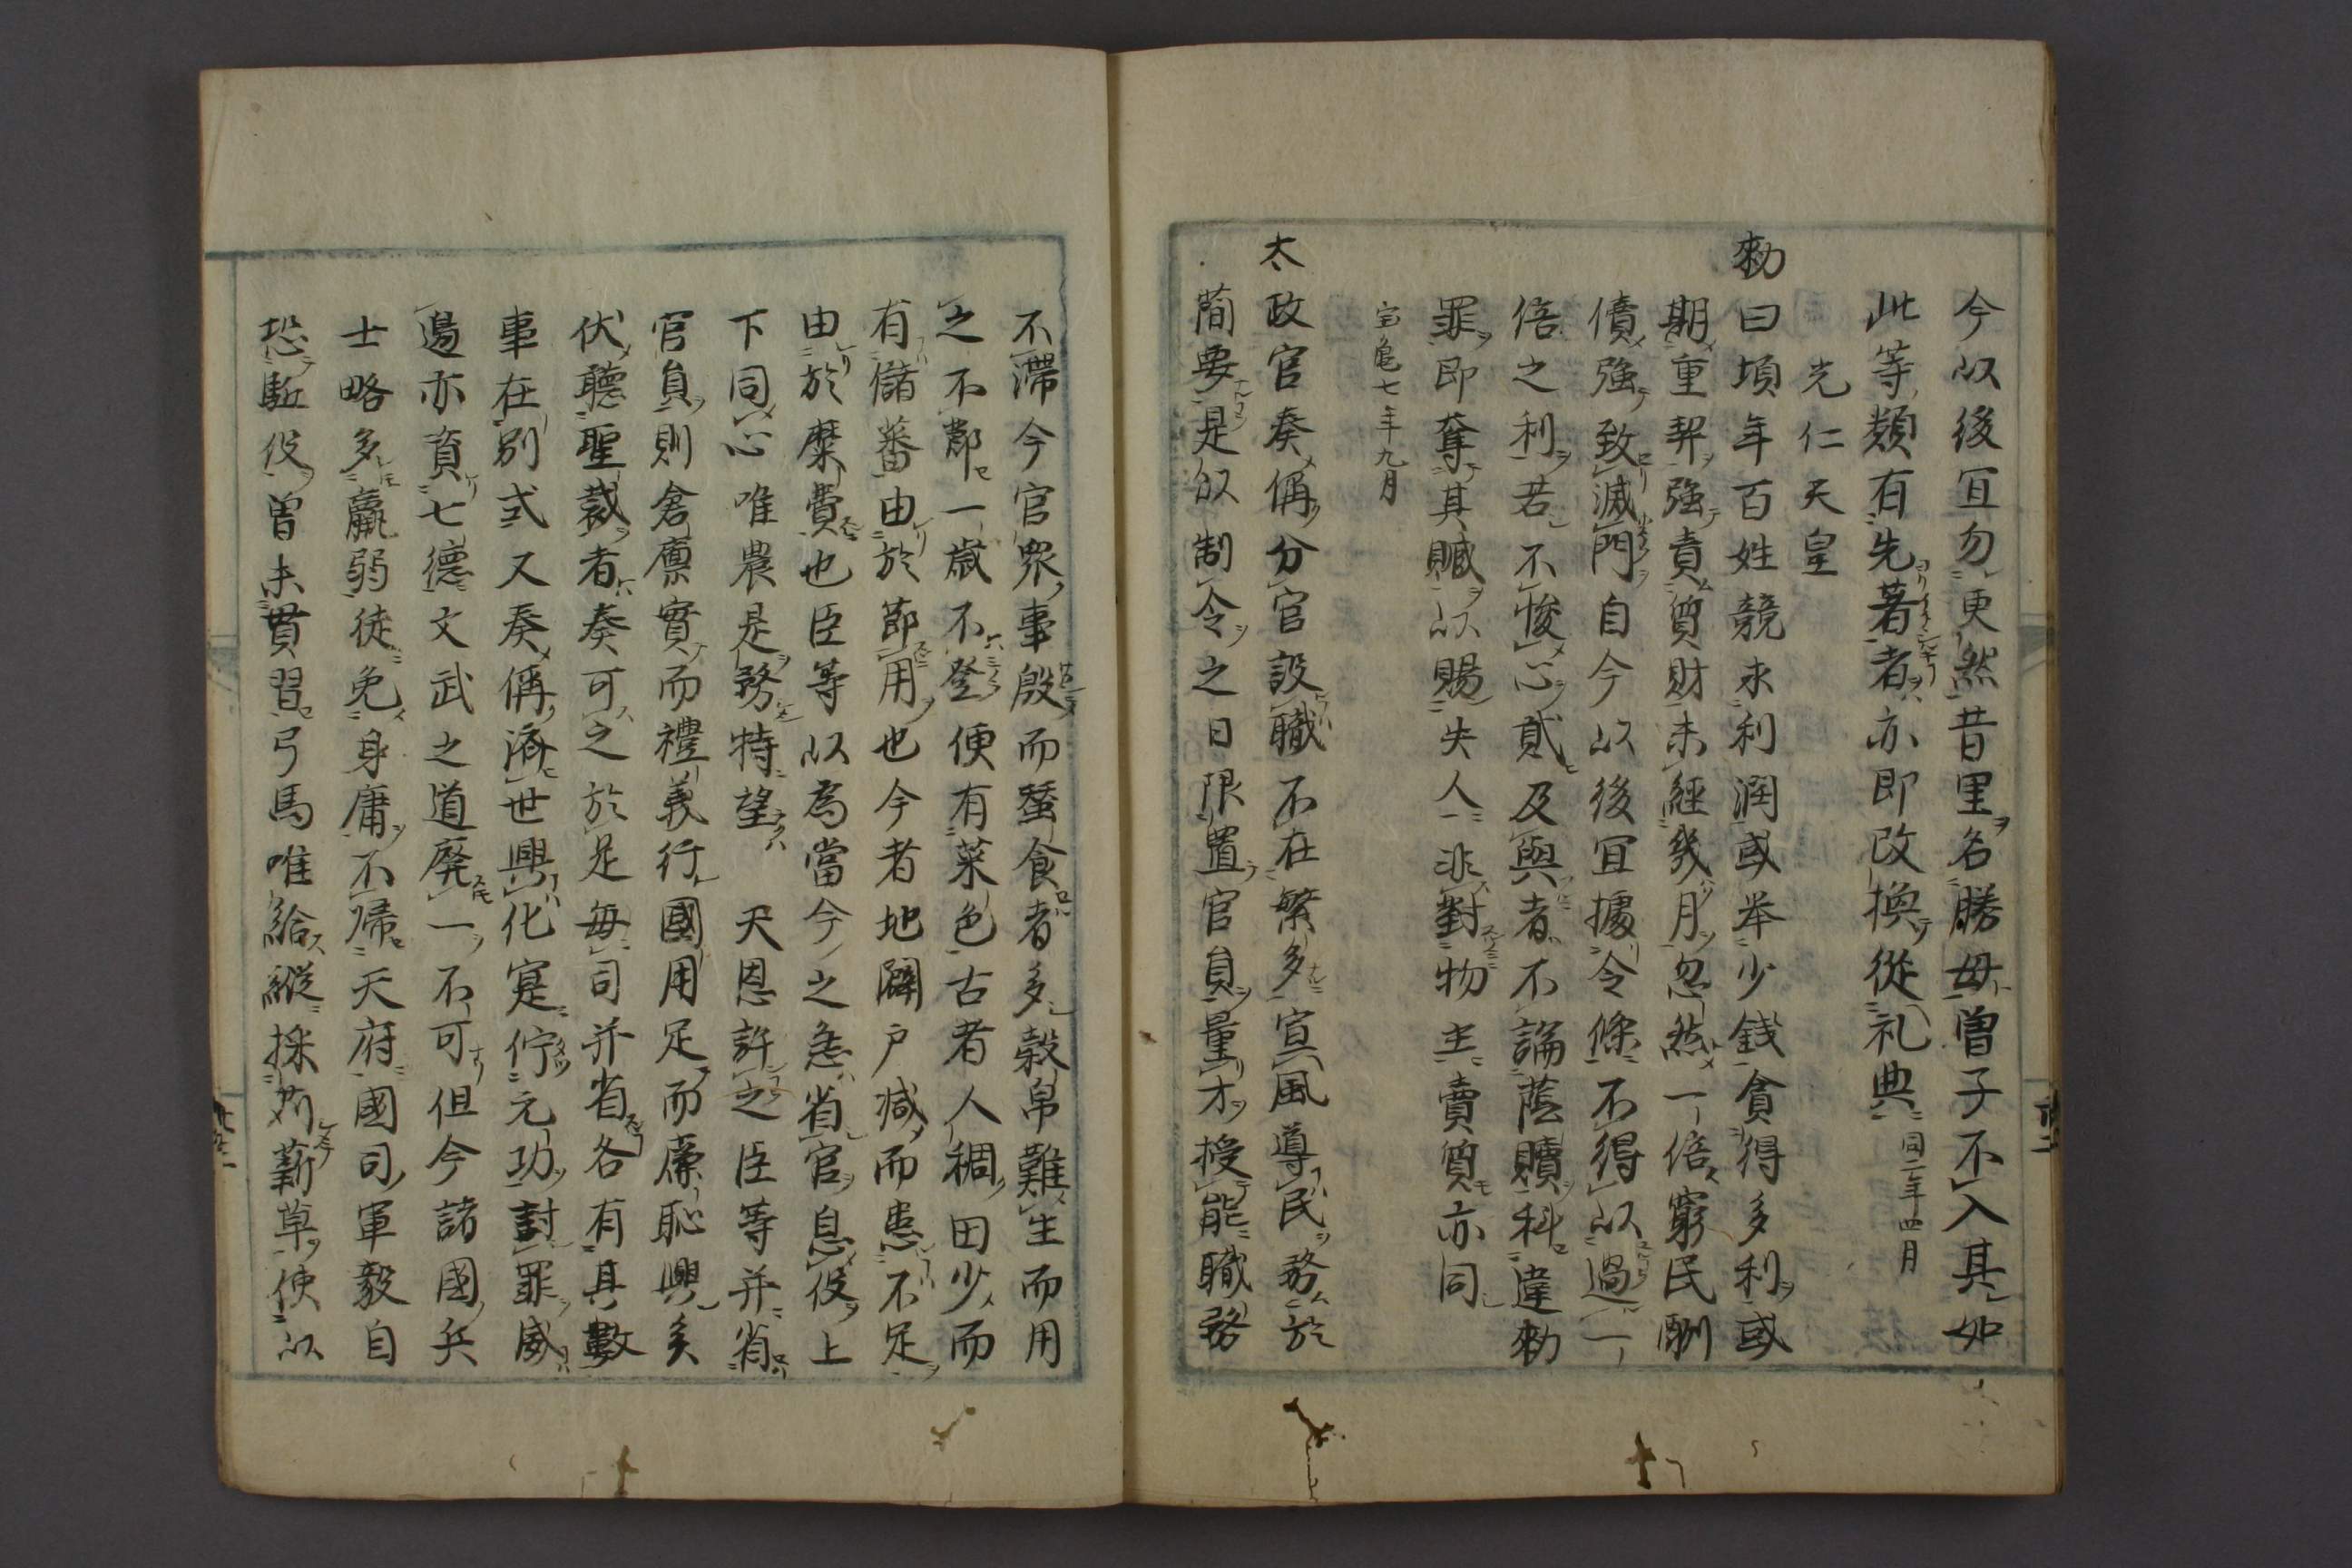 今以後冝勿更然昔里名勝母曽子不入其如
此等類有先著者亦即改換從礼典 同二年四月
光仁天皇
勅曰頃年百姓競求利潤或举少錢貪得多利或
期重契強責質財未經幾月忽然一倍窮民酬
債強致滅門自今以後冝據令條不得以過一
倍之利若不悛心貮及與者不論蔭贖科違勅
罪即奪其贓以賜失人非對物主賣質亦同
宝亀七年九月
太政官奏偁分官設職不在繁多寘風導民務於
蕳要是以制令之日限置官員量才授能職務
不滯今官衆事殷而蚕食者多榖帛難生而用
之不鄰一歳不登便有菜色古者人稠田少而
有儲蓄由於莭用也今者地闢户减而患不足
由於糜費也臣等以為當今之急省官息役上
下同心唯農是務特望 天恩許之臣等并省
官員則倉廪實而禮義行國用足而廉恥興矣
伏聽聖裁者奏可之於是毎司并省各有其數
事在別式又奏偁濟世興化寔佇元功討罪威
邊亦資七德文武之道廃一不可但今諸國兵
士略多羸弱徒免身庸不帰天府國司軍毅自
恣駈役曽未貫習弓馬唯給縦採苅薪草使以